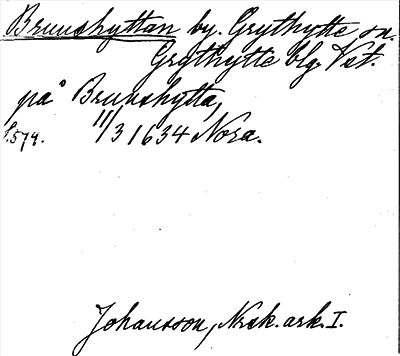 Brunshyttan by. Grythytte sn.
Grythytte blg Vstl.
på Brunshytta,
s. 574. 11/3 1634 Nora.
Johansson, Norsk. ark. I.